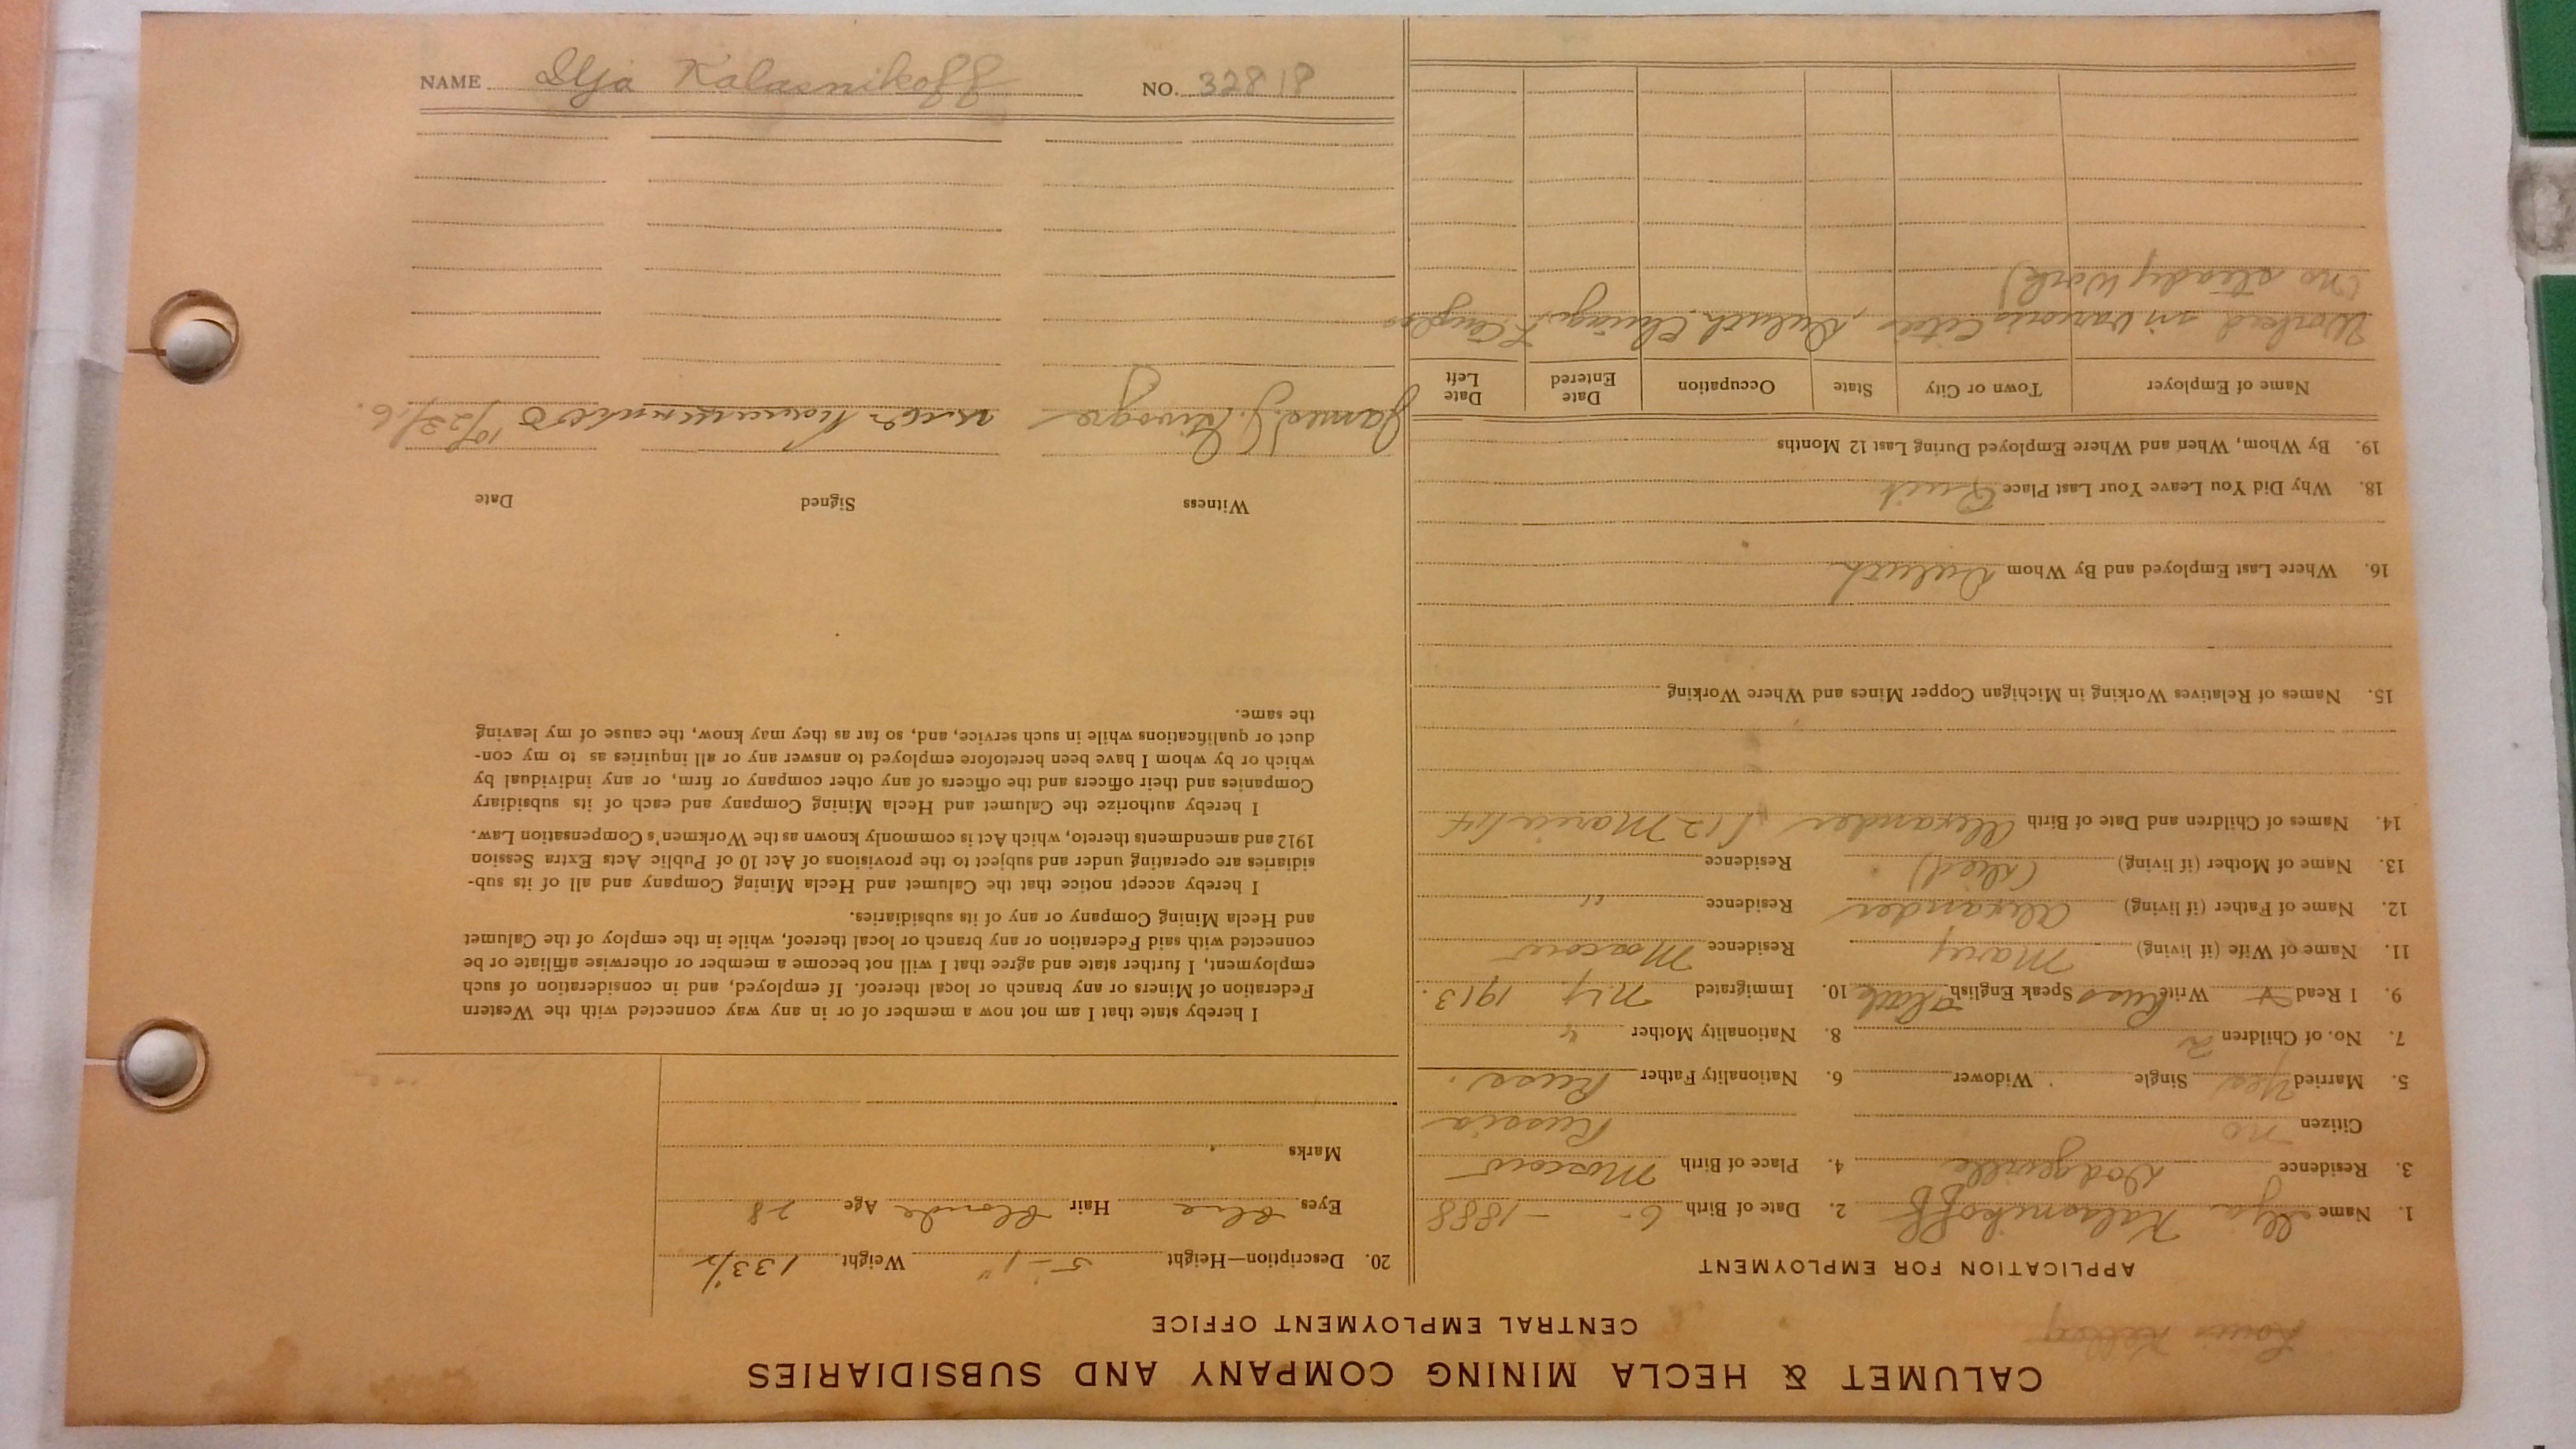 CALUMET & HECLA MINING COMPANY AND SUBSIDIARIES
CENTRAL EMPLOYMENT OFFICE
APPLICATION FOR EMPLOYMENT
1. Name Ilja Kalasnikoff 2. Date of Birth 6 - 1888
3. Residence Dodgeville 4. Place of Birth Moscow
Citizen no Russia
5. Married Yes Single Widower 6. Nationality Father Russ.
7. No. of Children 2 8. Nationality Mother "
9. I Read Write Russ Speak English little 10. Immigrated N.Y. 1913.
11. Name of Wife (if living) Mary Residence Moscow
12. Name of Father (if living) Alexander Residence "
13. Name of Mother (if living) (died) Residence
14. Names of Children and Date of Birth Alexander /12 Maria /14
15. Names of Relatives Working in Michigan Copper Mines and Where Working
16. Where Last Employed and By Whom Duluth
18. Why Did You Leave Your Last Place Quit
19. By Whom, When and Where Employed During Last 12 Months
Name of Employer Town or City State Occupation Date Entered Date Left
Worked in various Cities, Duluth, Chicago,
(no steady work)
20. Description—Height 5-1" Weight 133½
Eyes blue Hair blonde Age 28
Marks
I hereby state that I am not now a member of or in any way connected with the Western
Federation of Miners or any branch or local thereof. If employed, and in consideration of such
employment, I further state and agree that I will not become a member or otherwise affiliate or be
connected with said Federation or any branch or local thereof, while in the employ of the Calumet
and Hecla Mining Company or any of its subsidiaries.
I hereby accept notice that the Calumet and Hecla Mining Company and all of its sub-
sidiaries are operating under and subject to the provisions of Act 10 of Public Acts Extra Session
1912 and amendments thereto, which Act is commonly known as the Workmen's Compensation Law.
I hereby authorize the Calumet and Hecla Mining Company and each of its subsidiary
Companies and their officers and the officers of any other company or firm, or any individual by
which or by whom I have been heretofore employed to answer any or all inquiries as to my con-
duct or qualifications while in such service, and, so far as they may know, the cause of my leaving
the same.
Witness Signed Date
James J. 10/23/16.
NAME Ilja Kalasnikoff NO. 32818